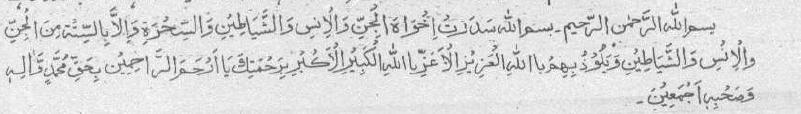 بسم الله الرّحمٰن الرّحیم ۔ بسم الله سَدَدْتُ اَفْوَاهَ الْجِنِّ وَالْاِنْسِ وَالشَّيَاطِيْنِ وَالسَّحَرَةِ وَاِلَّا بَالِسَةِ مِنَ الْجِنِّ
وَالْاِنْسِ وَالشَّيَاطِيْنِ وَيَلُوْذُ بِهِمْ بِاللهِ الْعَزِيْزِ الْاَعَزِّ بِاللهِ الْكَبِيْرِ الْاَكْبَرِ بِرَحْمَتِكَ يَا اَرْحَمَ الرَّاحِمِيْنَ بِحَقِّ مُحَمَّدٍ وَّاٰلِهٖ
وَصَحْبِهٖ اَجْمَعِيْنَ ۔